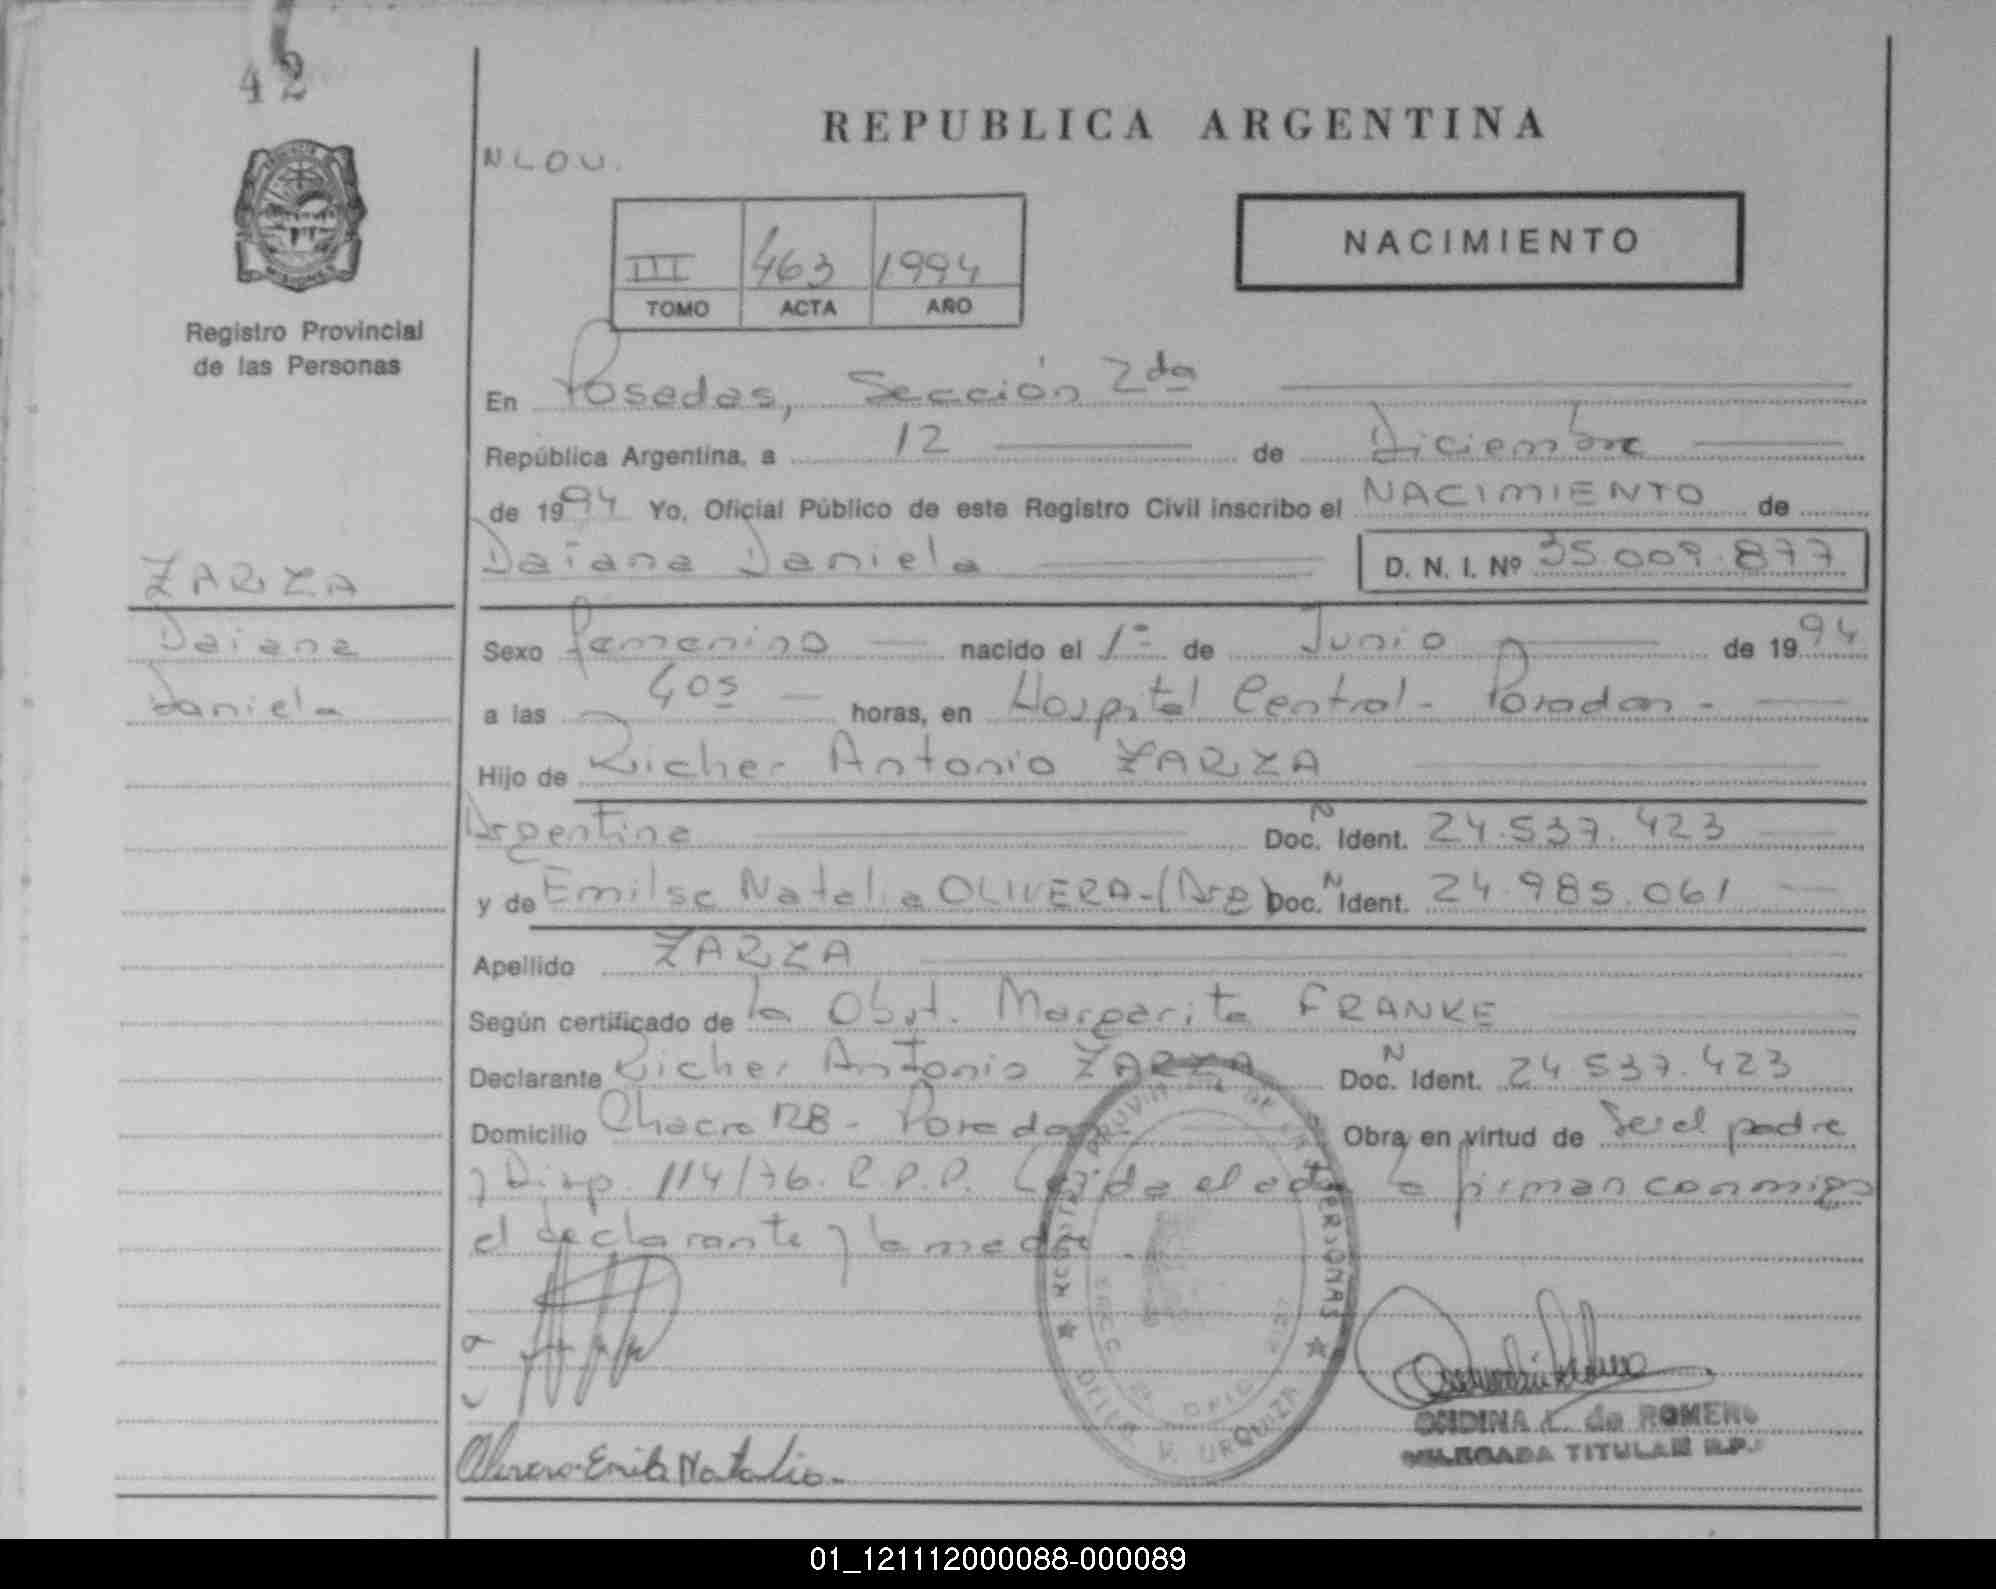 42
REPUBLICA ARGENTINA
NLOU.
III 463 1994
TOMO ACTA AÑO
NACIMIENTO
Registro Provincial
de las Personas
En Posadas, Sección 2da
República Argentina, a 12 de Diciembre
de 1994 Yo, Oficial Público de este Registro Civil inscribo el NACIMIENTO de
Daiana Daniela D. N. I. Nº 35.009.877
ZARZA
Daiana
Daniela
Sexo femenino nacido el 1º de Junio de 1994
a las 405 horas, en Hospital Central - Posadas -
Hijo de Richer Antonio ZARZA
Argentina Doc. N Ident. 24.537.423
y de Emilse Natalia OLIVERA - (Arg) Doc. N Ident. 24.985.061
Apellido ZARZA
Según certificado de la Obst. Margarita FRANKE
Declarante Richer Antonio ZARZA Doc. N Ident. 24.537.423
Domicilio Chacra 128 - Posadas Obra en virtud de Ser el padre
y Disp. 114/76. R.P.P. Leída el acta la firman conmigo
el declarante y la madre.
REGISTRO PROVINCIAL DE LAS PERSONAS
URQUIZA
Olivera Emilse Natalia.
ONDINA L. de ROMERO
DELEGADA TITULAR R.P.
01_121112000088-000089